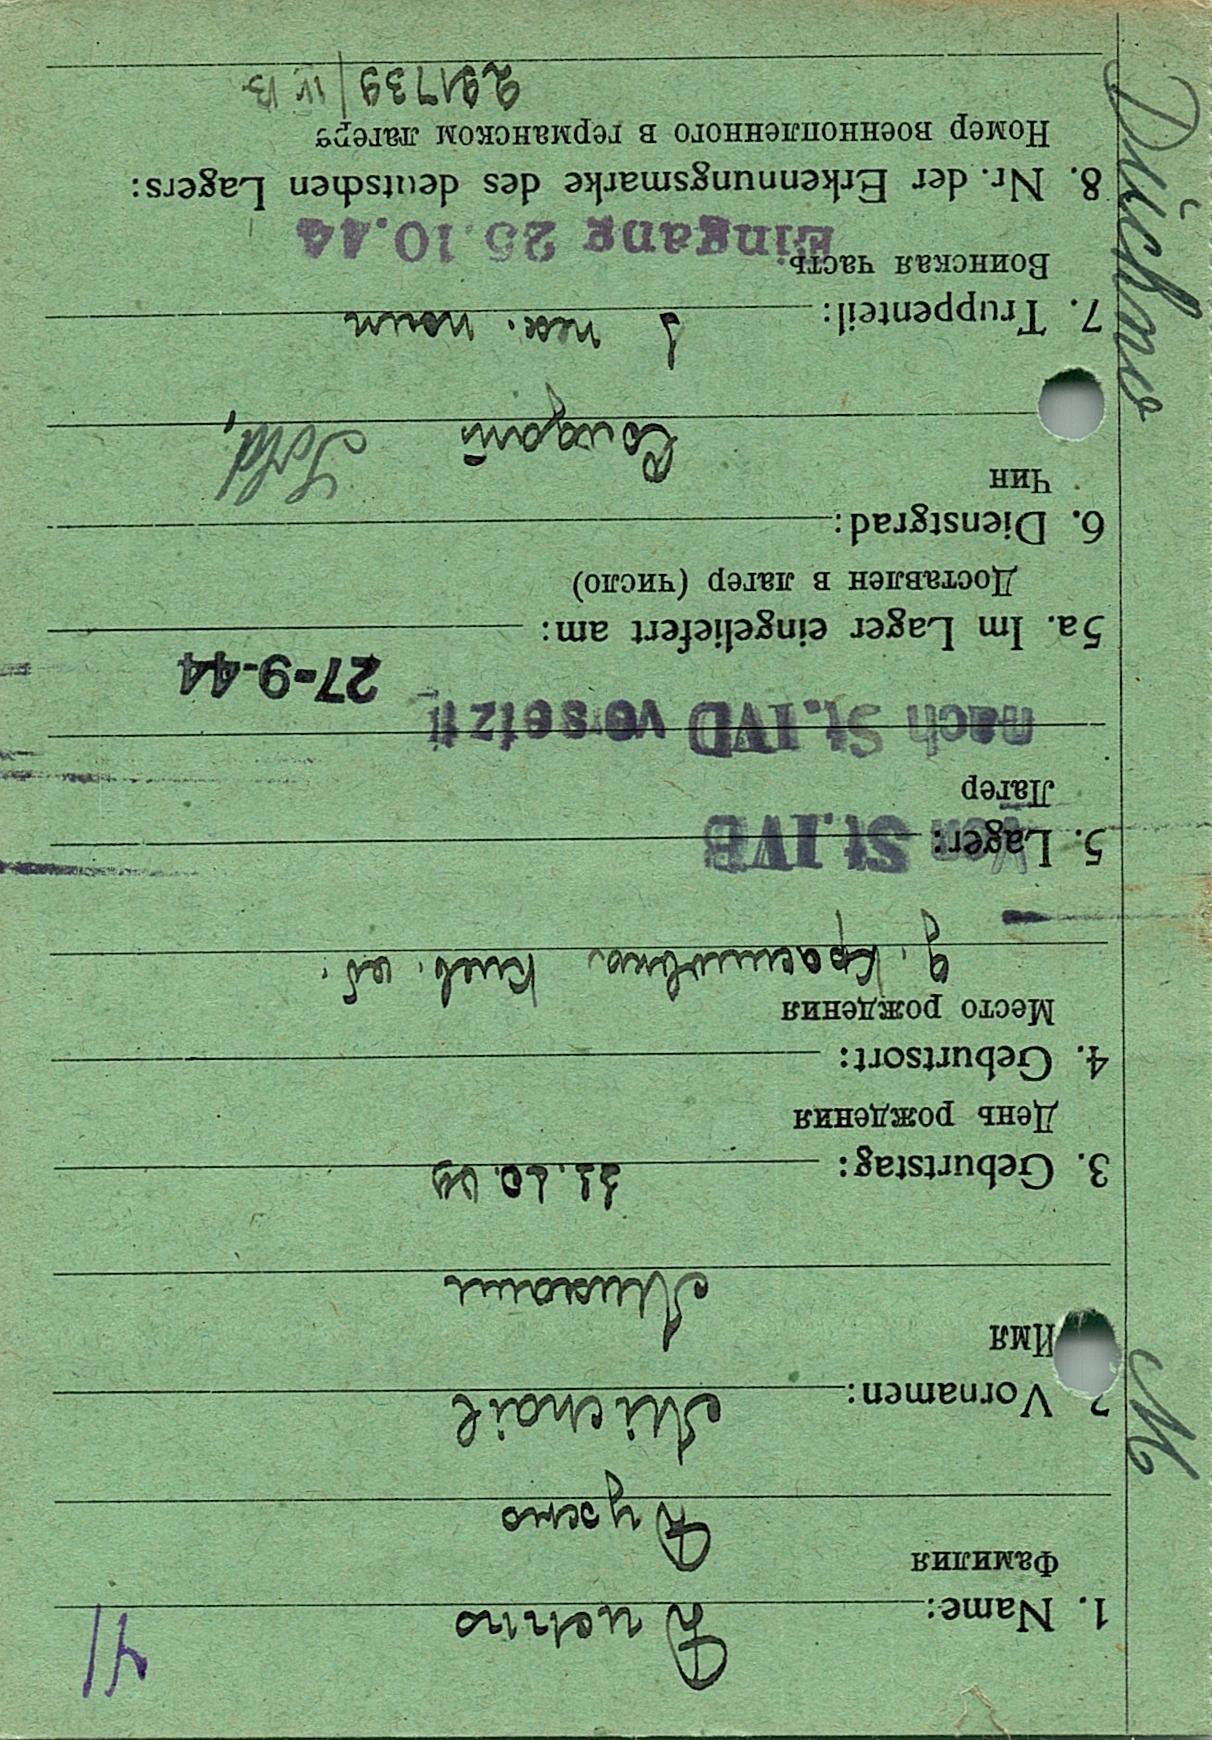 41
1. Name: Duchno
Фамилия
Духно
2. Vornamen: Michail
Имя
Михаил
3. Geburtstag:
День рождения
4. Geburtsort:
Место рождения
д. Киев. об.
5. Lager: von St. IVB
Лагер
nach St. IVD versetzt
27-9-44
5a. Im Lager eingeliefert am:
Доставлен в лагер (число)
6. Dienstgrad:
Чин
Солдат Sold.
7. Truppenteil: пех. полк
Воинская часть
Eingang 25.10.44
8. Nr. der Erkennungsmarke des deutschen Lagers:
Номер военнопленного в германском лагере
291739/IV B
M